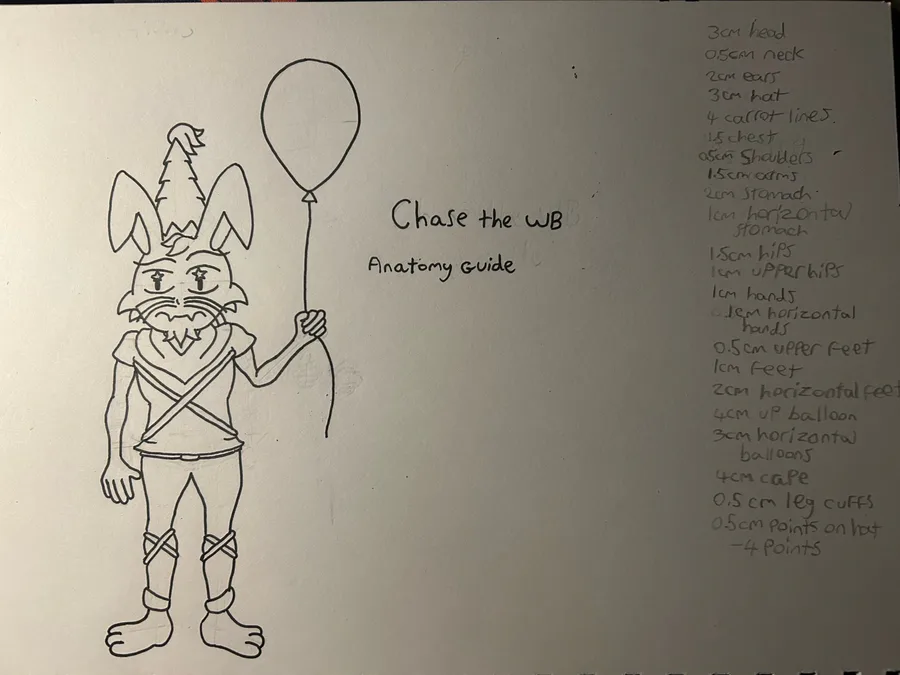 Chase the WB
Anatomy Guide
3cm head
0.5cm neck
2cm ears
3cm hat
4 carrot lines.
1.5 chest
0.5cm Shoulders
1.5cm arms
2cm Stomach
1cm horizontal
stomach
1.5cm hips
1cm upper hips
1cm hands
1cm horizontal
hands
0.5cm upper feet
1cm feet
2cm horizontal feet
4cm up balloon
3cm horizontal
balloons
4cm cape
0.5cm leg cuffs
0.5cm Points on hat
-4 Points